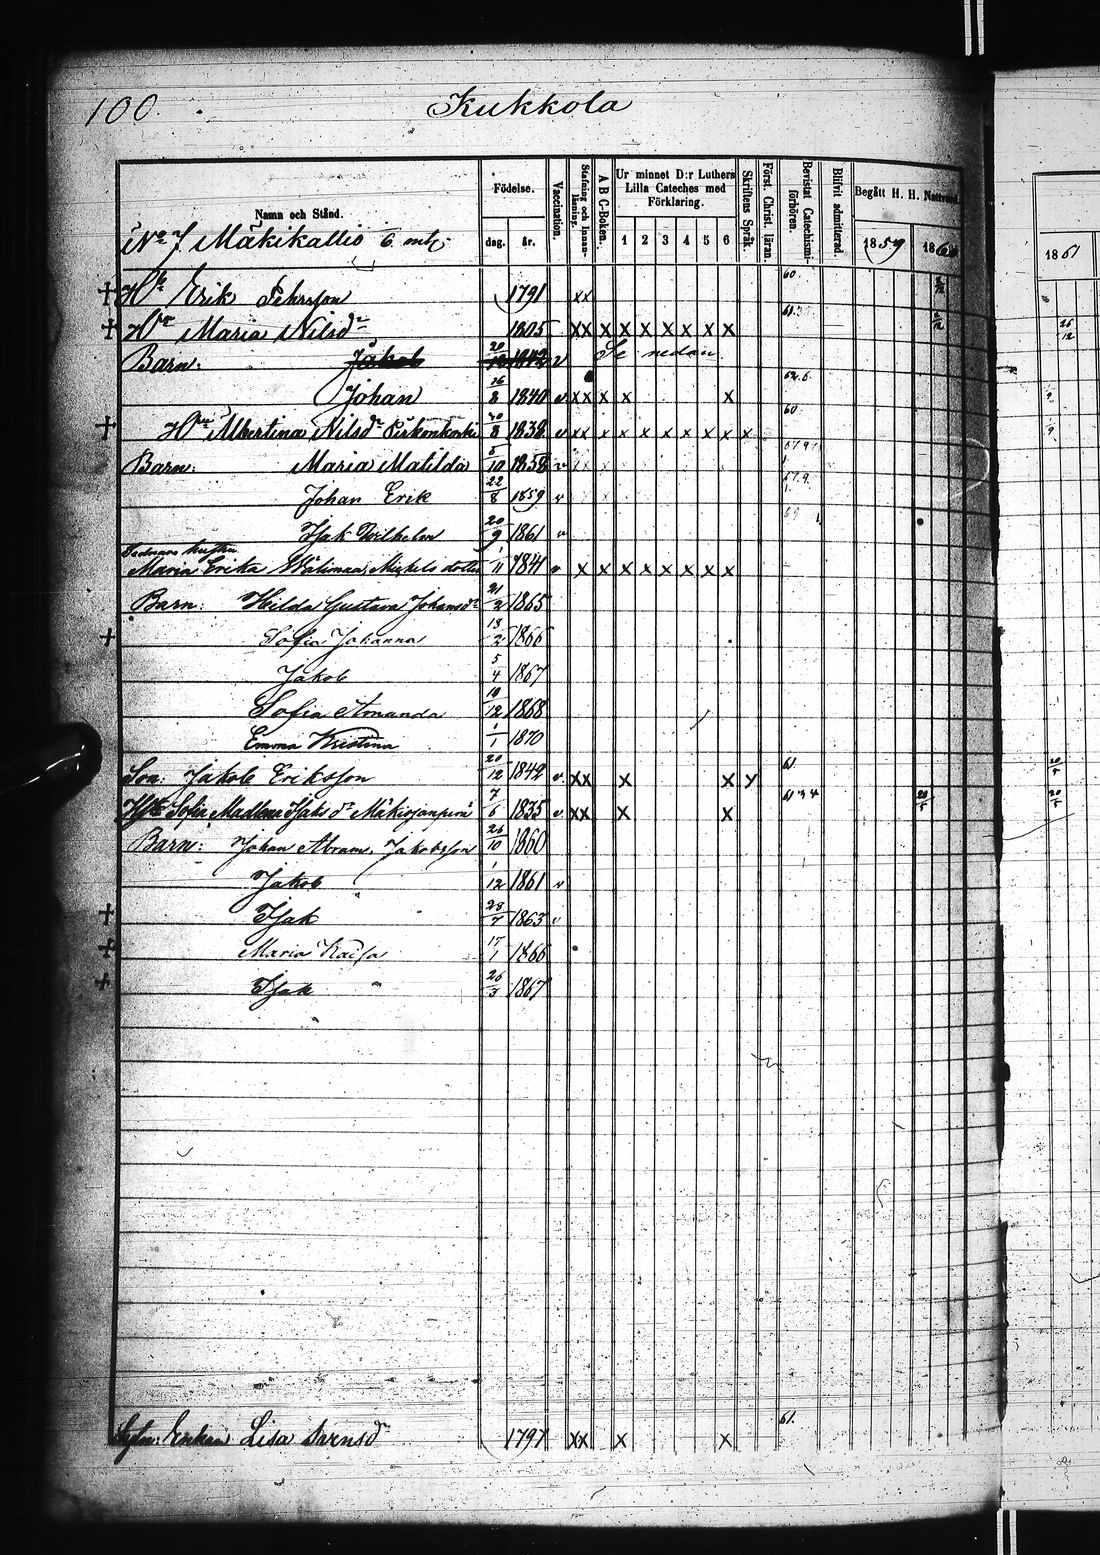 100. Kukkola
Namn och Stånd.
Födelse.
dag. år.
Vaccination.
Stafning och Innanläsning.
A B C-Boken.
Ur minnet D:r Luthers Lilla Cateches med Förklaring.
1 2 3 4 5 6
Skriftens Språk.
Först. Christ. läran.
Bevistat Catechismiförhören.
Blifvit admitterad.
Begått H. H. Nattvard.
1859 1860 1861
No 7 Mäkikallio 6 mtl
† Erik Pehrsson 1791 xx 60.
† Maria Nilsdr 1805 xx x x x x x x x 61. 26/12
Barn: Jakob 20/12 1842 v Se nedan
Johan 16/8 1840 v xx x x x 62.6.
† Albertina Nilsdr 1838 v xx x x x x x x x x 60
Barn: Maria Matilda 5/10 1858 v
Johan Erik 22/8 1859 v
Isak Wilhelm 20/9 1861 v
Maria Erika Mickelsdotter 1/11 1841 v x x x x x x x x
Barn: Hilda Gustava Johansdr 21/2 1865
† Sofia Johanna 13/2 1866
Jakob 5/4 1867
Sofia Amanda 19/12 1868
Emma Kristina 1/1 1870
Son: Jakob Eriksson 20/12 1842 v xx x x y 61.
Sofia Madlena Isaksdr 7/6 1835 v xx x x 61 3 4
Barn: Johan Abram Jakobsson 26/10 1860
Jakob 1/12 1861 v
† Isak 28/7 1863 v
† Maria Kaisa 17/1 1866
† Isak 26/3 1867
Enkan Lisa 1797 xx x x 61.